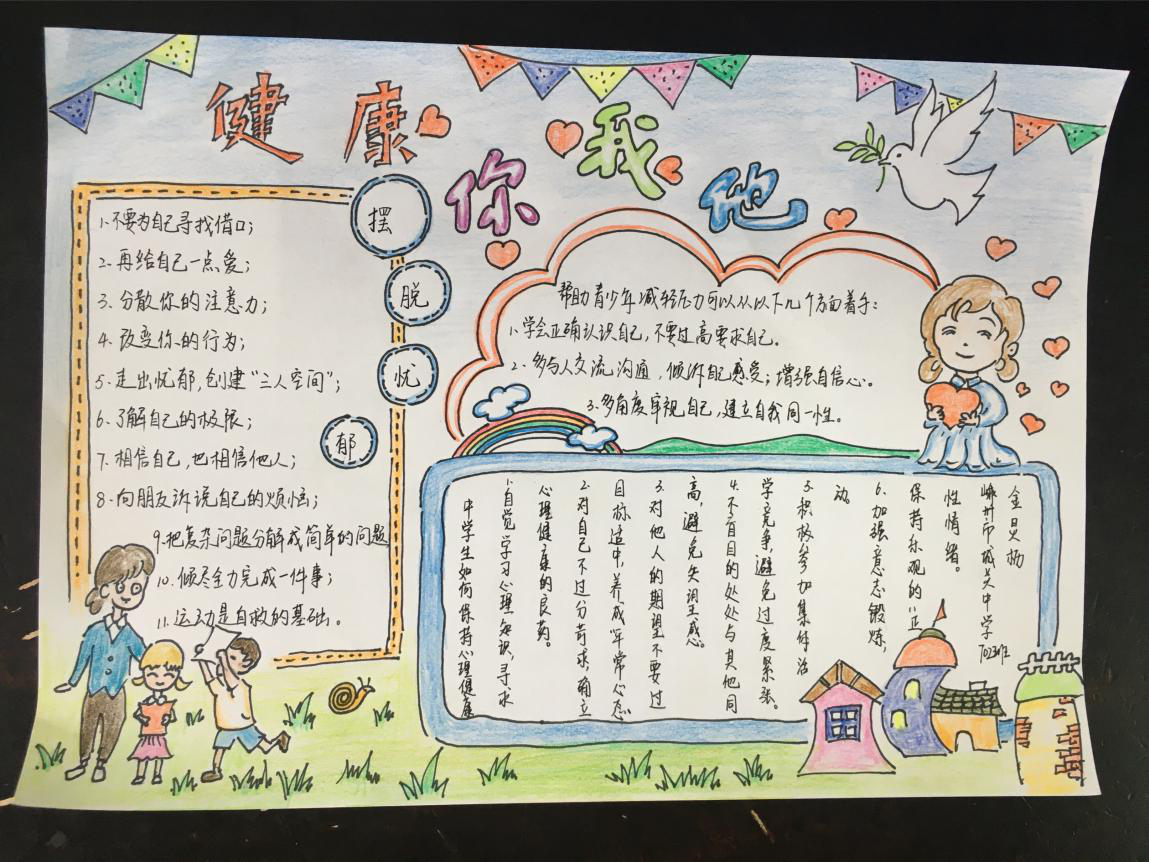 健康你我他
摆脱忧郁
1.不要为自己寻找借口;
2.再给自己一点爱;
3.分散你的注意力;
4.改变你的行为;
5.走出忧郁,创建"三人空间";
6.了解自己的极限;
7.相信自己,也相信他人;
8.向朋友诉说自己的烦恼;
9.把复杂问题分解成简单的问题
10.倾尽全力完成一件事;
11.运动是自救的基础。
帮助青少年减轻压力可以从以下几个方面着手:
1.学会正确认识自己,不要过高要求自己。
2.多与人交流沟通,倾诉自己感受;增强自信心。
3.多角度审视自己,建立自我同一性。
中学生如何保持心理健康
1.自觉学习心理知识,寻求
心理健康的良药。
2.对自己不过分苛求,确立
目标适中,养成平常心态
3.对他人的期望不要过
高,避免失调感。
4.不盲目的处处与其他同
学竞争,避免过度紧张。
5.积极参加集体活
动
6.加强意志锻炼,
保持乐观的"正
性情绪。
嵊州市城关中学